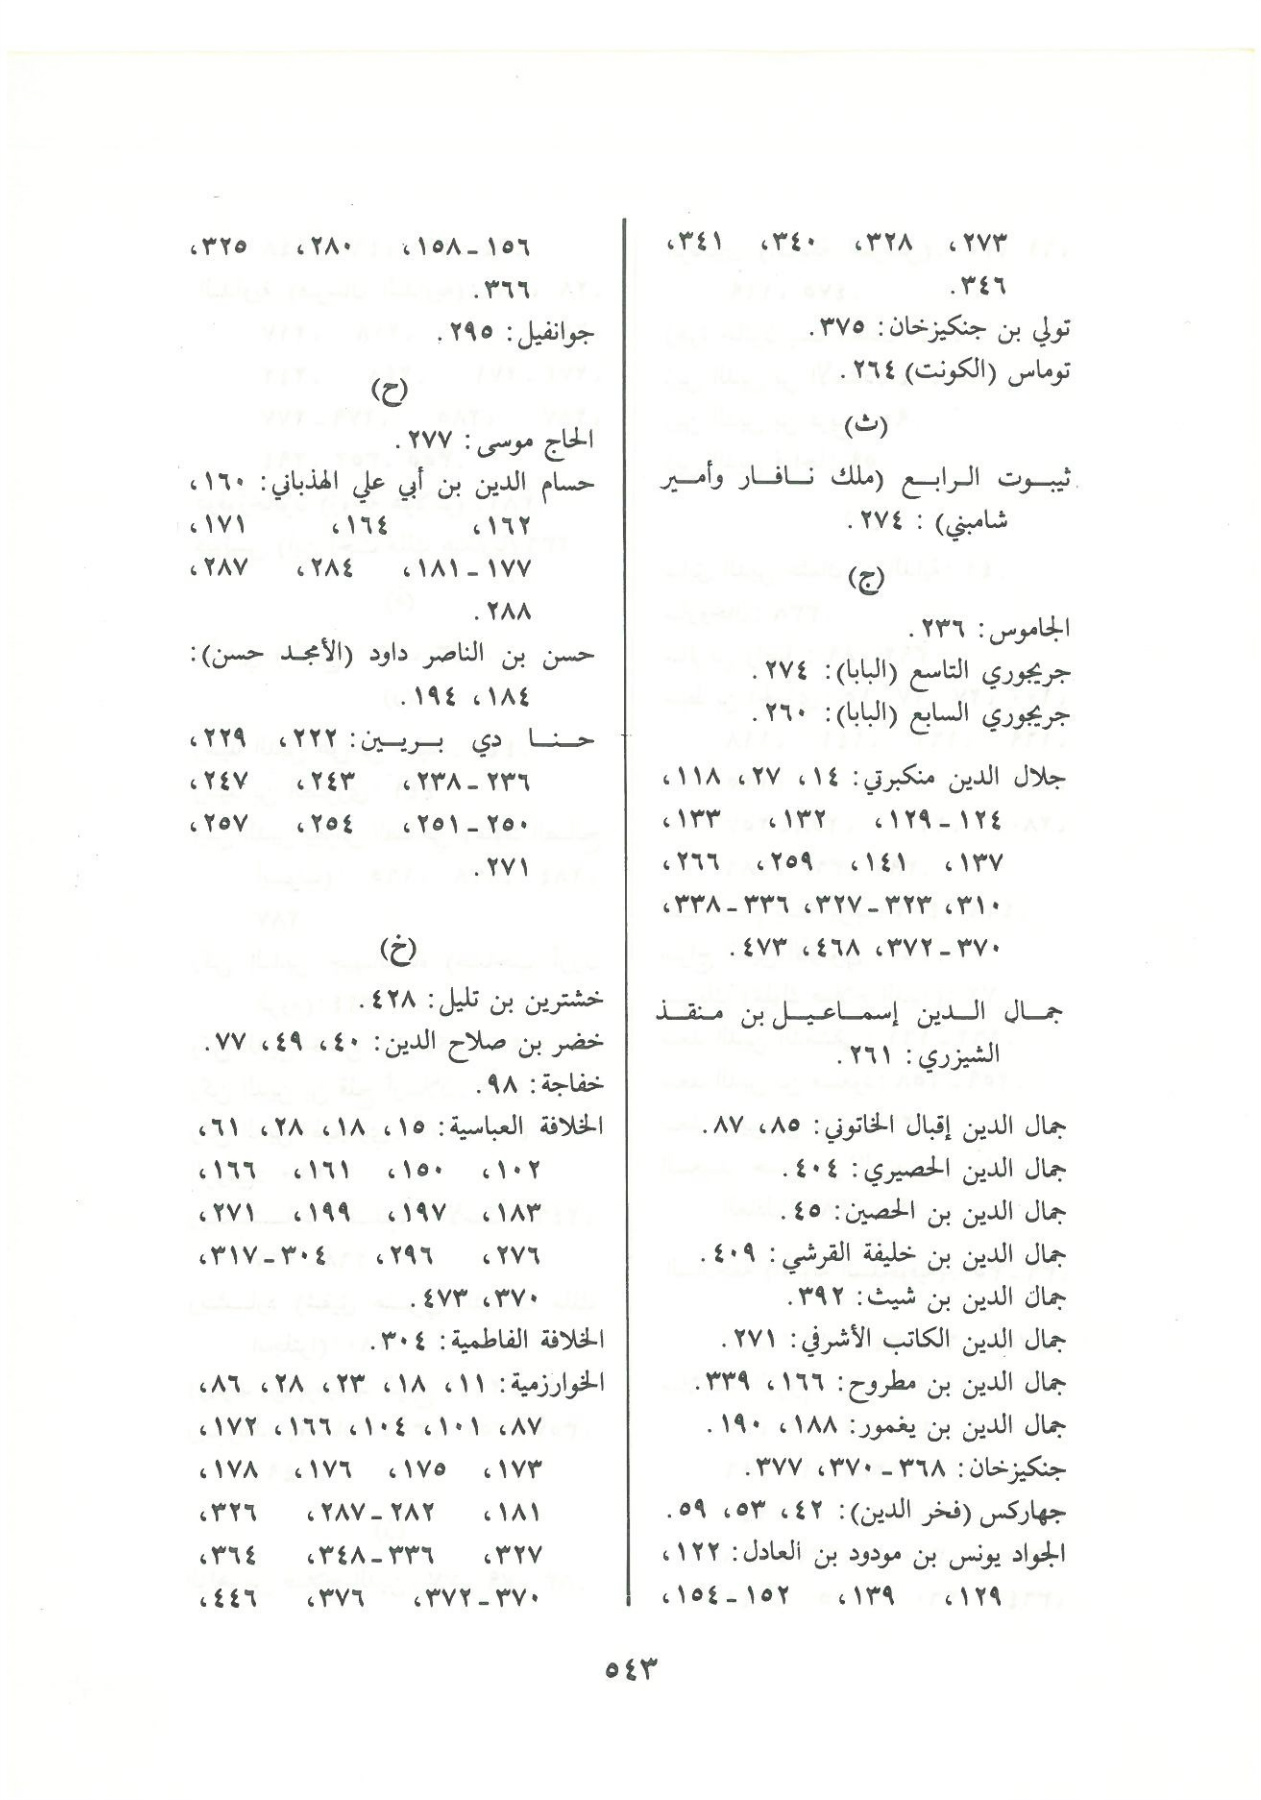 ٢٧٣، ٣٢٨، ٣٤٠، ٣٤١،
٣٤٦.
تولي بن جنكيزخان: ٣٧٥.
توماس (الكونت) ٢٦٤.
(ث)
ثيبوت الرابع (ملك نافار وأمير
شامبني) : ٢٧٤.
(ج)
الجاموس: ٢٣٦.
جريجوري التاسع (البابا): ٢٧٤.
جريجوري السابع (البابا): ٢٦٠.
جلال الدين منكبرتي: ١٤، ٢٧، ١١٨،
١٢٤ـ١٢٩، ١٣٢، ١٣٣،
١٣٧، ١٤١، ٢٥٩، ٢٦٦،
٣١٠، ٣٢٣ـ٣٢٧، ٣٣٦ـ٣٣٨،
٣٧٠ـ٣٧٢، ٤٦٨، ٤٧٣.
جمال الدين إسماعيل بن منقذ
الشيزري: ٢٦١.
جمال الدين إقبال الخاتوني: ٨٥، ٨٧.
جمال الدين الحصيري: ٤٠٤.
جمال الدين بن الحصين: ٤٥.
جمال الدين بن خليفة القرشي: ٤٠٩.
جمال الدين بن شيث: ٣٩٢.
جمال الدين الكاتب الأشرفي: ٢٧١.
جمال الدين بن مطروح: ١٦٦، ٣٣٩.
جمال الدين بن يغمور: ١٨٨، ١٩٠.
جنكيزخان: ٣٦٨ـ٣٧٠، ٣٧٧.
جهاركس (فخر الدين): ٤٢، ٥٣، ٥٩.
الجواد يونس بن مودود بن العادل: ١٢٢،
١٢٩، ١٣٩، ١٥٢ـ١٥٤،
١٥٦ـ١٥٨، ٢٨٠، ٣٢٥،
٣٦٦.
جوانفيل: ٢٩٥.
(ح)
الحاج موسى: ٢٧٧.
حسام الدين بن أبي علي الهذباني: ١٦٠،
١٦٢، ١٦٤، ١٧١،
١٧٧ـ١٨١، ٢٨٤، ٢٨٧،
٢٨٨.
حسن بن الناصر داود (الأمجد حسن):
١٨٤، ١٩٤.
حنا دي بريين: ٢٢٢، ٢٢٩،
٢٣٦ـ٢٣٨، ٢٤٣، ٢٤٧،
٢٥٠ـ٢٥١، ٢٥٤، ٢٥٧،
٢٧١.
(خ)
خشترين بن تليل: ٤٢٨.
خضر بن صلاح الدين: ٤٠، ٤٩، ٧٧.
خفاجة: ٩٨.
الخلافة العباسية: ١٥، ١٨، ٢٨، ٦١،
١٠٢، ١٥٠، ١٦١، ١٦٦،
١٨٣، ١٩٧، ١٩٩، ٢٧١،
٢٧٦، ٢٩٦، ٣٠٤ـ٣١٧،
٣٧٠، ٤٧٣.
الخلافة الفاطمية: ٣٠٤.
الخوارزمية: ١١، ١٨، ٢٣، ٢٨، ٨٦،
٨٧، ١٠١، ١٠٤، ١٦٦، ١٧٢،
١٧٣، ١٧٥، ١٧٦، ١٧٨،
١٨١، ٢٨٢ـ٢٨٧، ٣٢٦،
٣٢٧، ٣٣٦ـ٣٤٨، ٣٦٤،
٣٧٠ـ٣٧٢، ٣٧٦، ٤٤٦،
٥٤٣